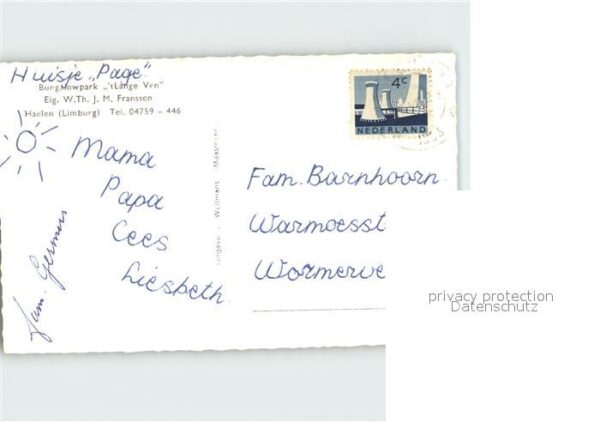 Huisje „Page”
Bungalowpark „'t Lange Ven”
Eig. W.Th. J. M. Franssen
Haelen (Limburg) Tel. 04759 – 446
Mama
Papa
Cees
Liesbeth.
fam. Germers
4c
NEDERLAND
Fam. Barnhoorn
Warmoesst
Wormerve
privacy protection
Datenschutz